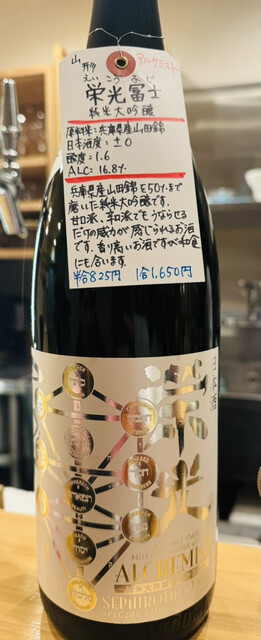 山形
アルケミスト
えいこうふじ
栄光冨士
純米大吟醸
原料米：兵庫県産山田錦
日本酒度：±0
酸度：1.6
ALC：16.8%
兵庫県産山田錦を50%まで
磨いた純米大吟醸です。
甘口派、辛口派でもうならせる
だけの威力が感じられるお酒
です。香り高いお酒ですが和食
にも合います。
半合825円 1合1,650円
日本酒
栄光
ALCHEMIST
SEPHIROTHIC